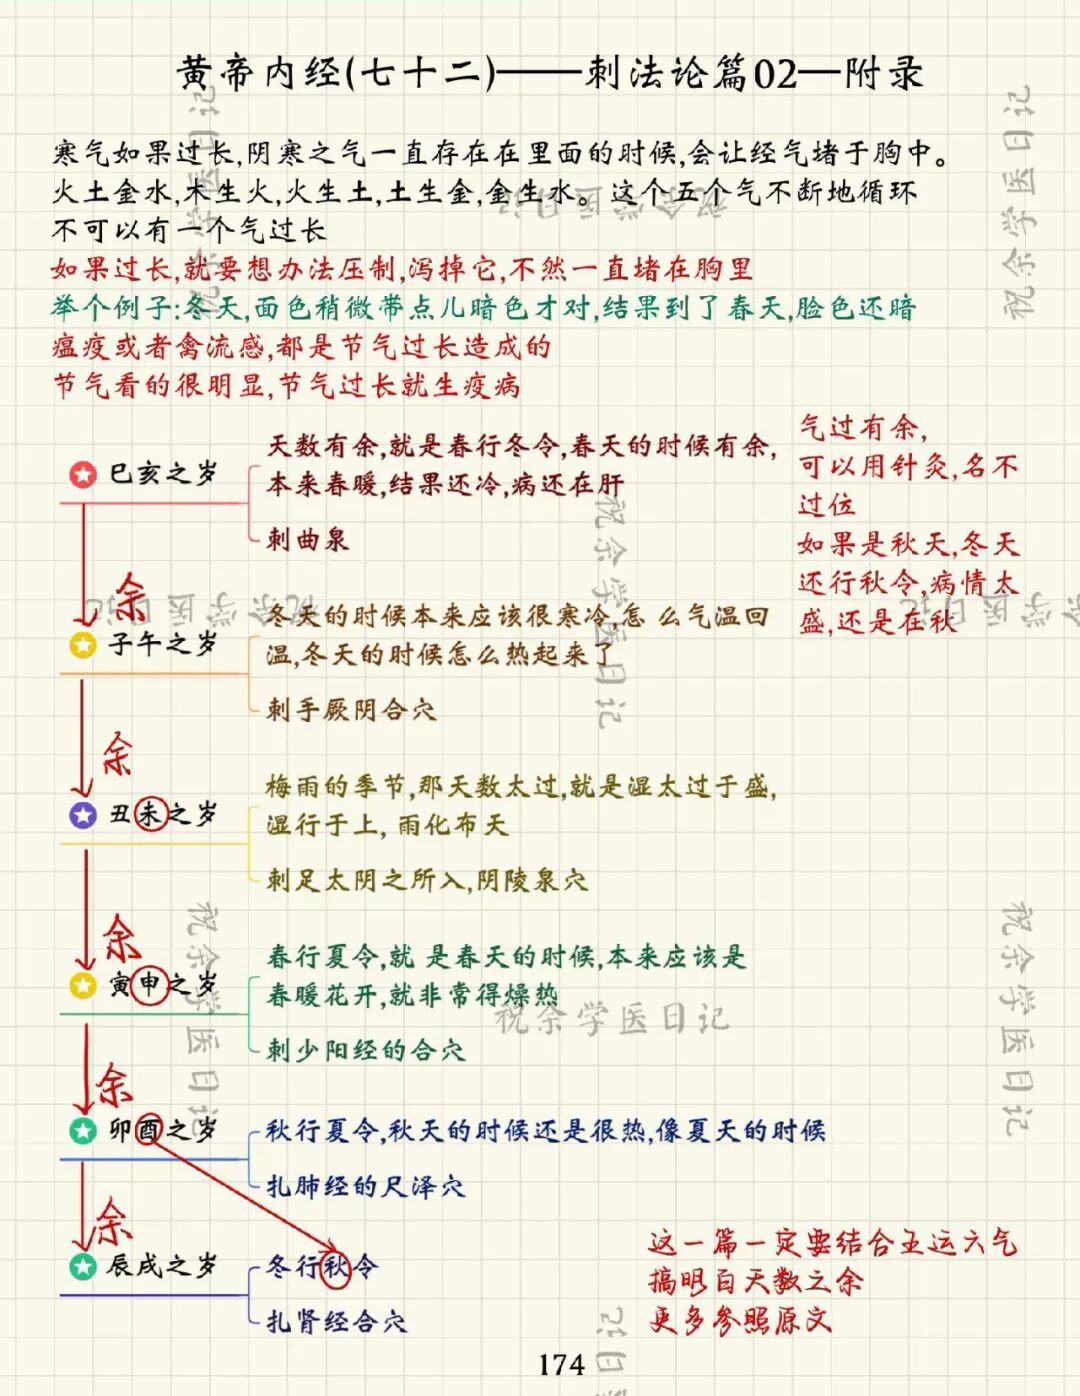 黄帝内经(七十二)——刺法论篇02—附录
寒气如果过长,阴寒之气一直存在在里面的时候,会让经气堵于胸中。
火土金水,木生火,火生土,土生金,金生水。这个五个气不断地循环
不可以有一个气过长
如果过长,就要想办法压制,泻掉它,不然一直堵在胸里
举个例子:冬天,面色稍微带点儿暗色才对,结果到了春天,脸色还暗
瘟疫或者禽流感,都是节气过长造成的
节气看的很明显,节气过长就生疫病
巳亥之岁
天数有余,就是春行冬令,春天的时候有余,
本来春暖,结果还冷,病还在肝
刺曲泉
气过有余,
可以用针灸,名不
过位
如果是秋天,冬天
还行秋令,病情太
盛,还是在秋
余
子午之岁
冬天的时候本来应该很寒冷,怎 么气温回
温,冬天的时候怎么热起来了
刺手厥阴合穴
余
丑未之岁
梅雨的季节,那天数太过,就是湿太过于盛,
湿行于上, 雨化布天
刺足太阴之所入,阴陵泉穴
余
寅申之岁
春行夏令,就 是春天的时候,本来应该是
春暖花开,就非常得燥热
刺少阳经的合穴
余
卯酉之岁
秋行夏令,秋天的时候还是很热,像夏天的时候
扎肺经的尺泽穴
余
辰戌之岁
冬行秋令
扎肾经合穴
这一篇一定要结合五运六气
搞明白天数之余
更多参照原文
174
祝余学医日记
祝余学医日记
祝余学医日记
祝余学医日记
祝余学医日记
祝余学医日记
祝余学医日记
祝余学医日记
祝余学医日记